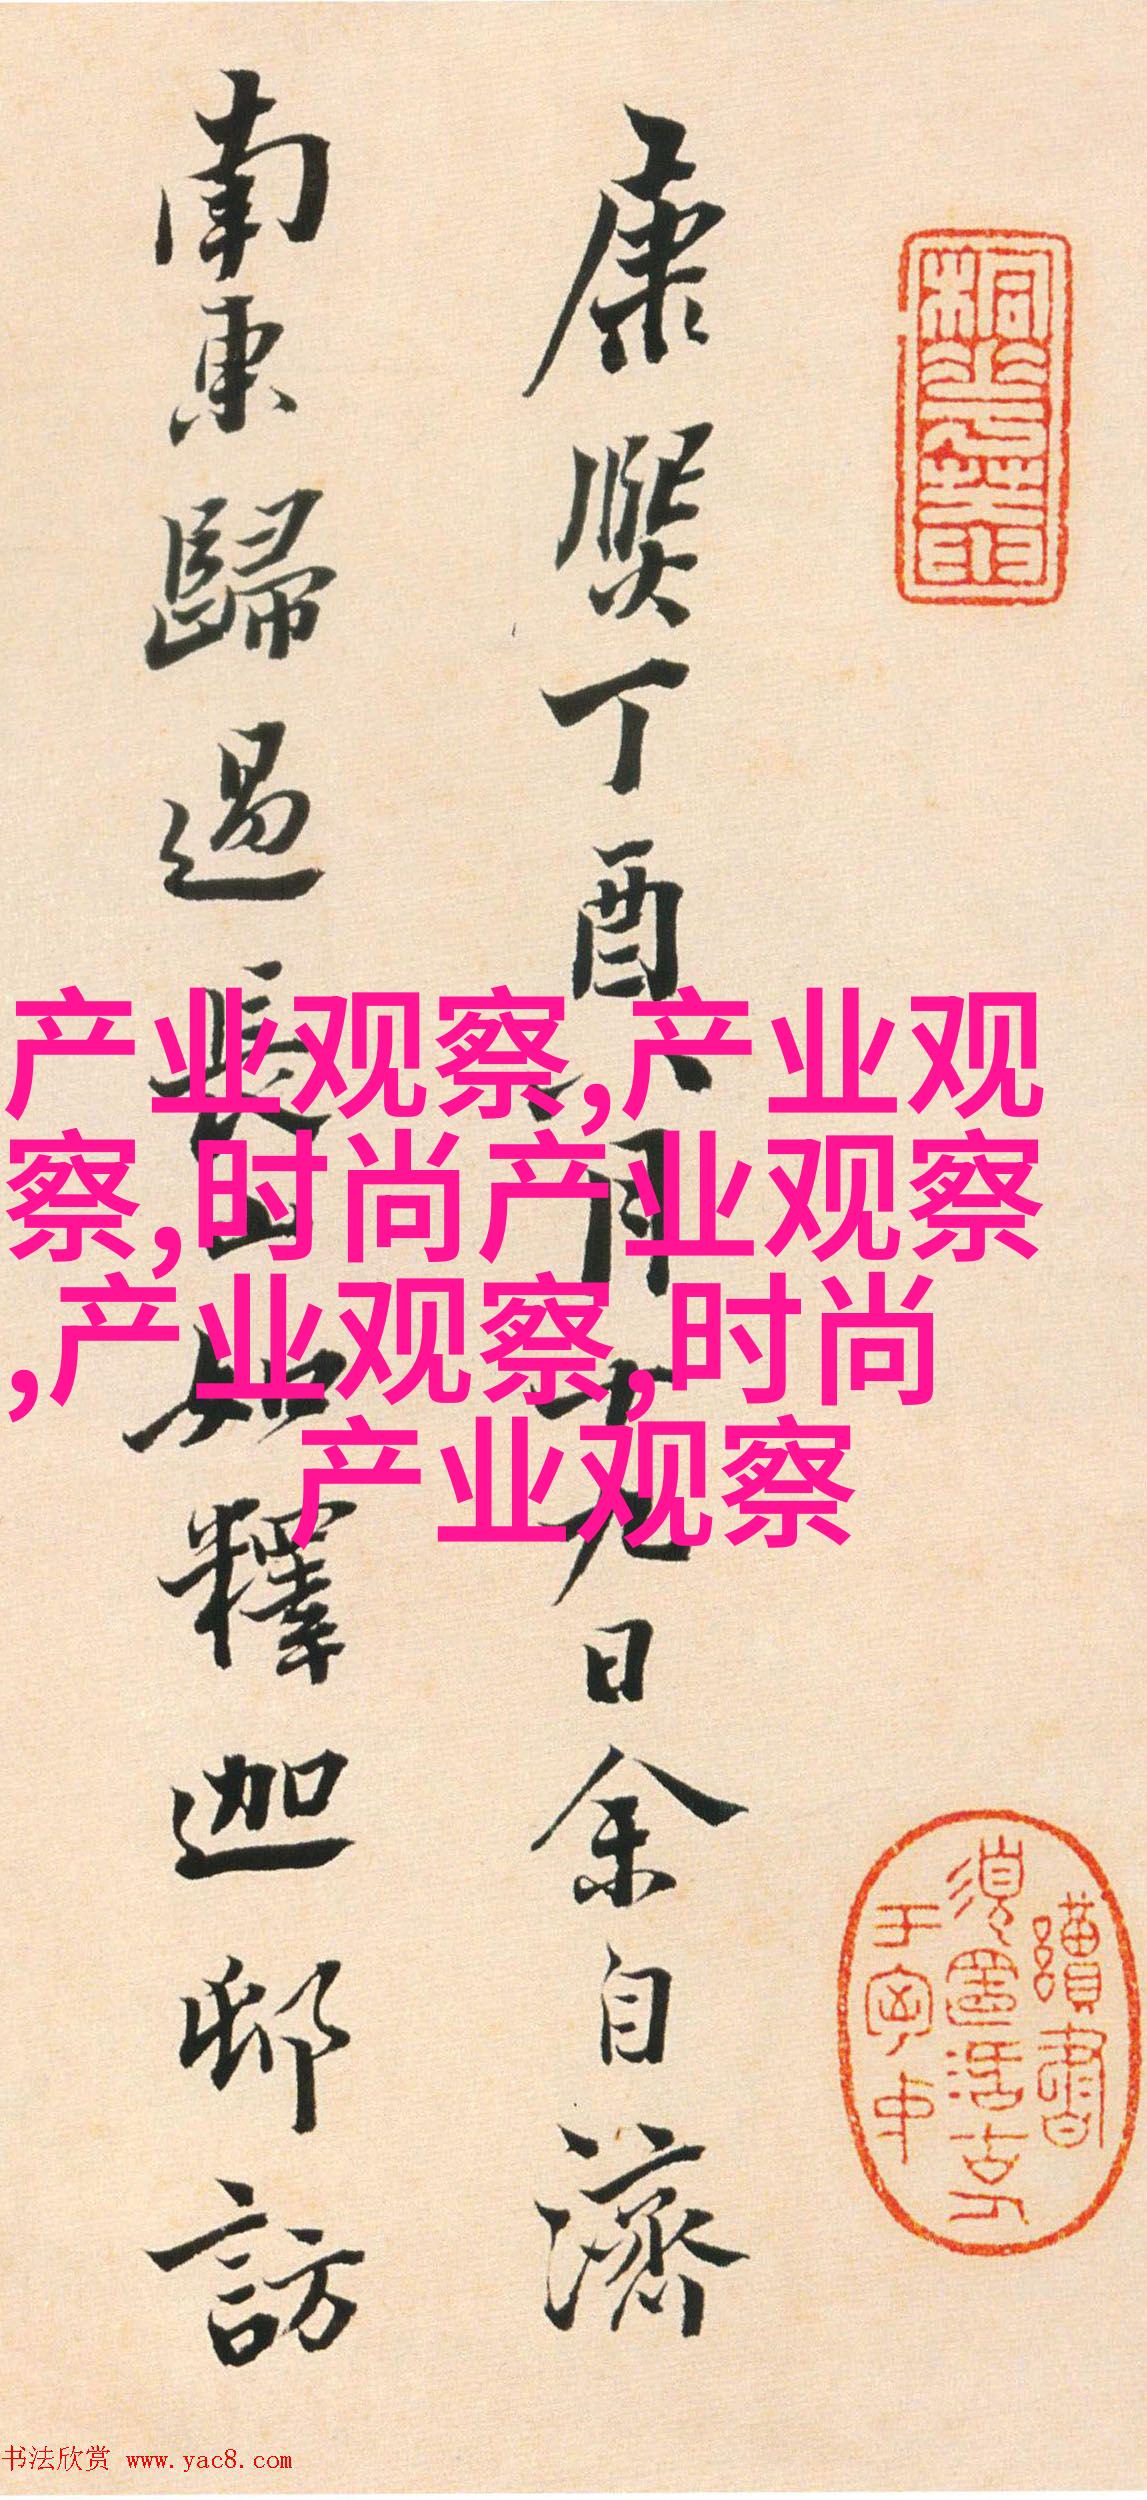 康熙丁酉八月十九日余自濟
南東歸過長山如釋迦邸訪
产业观察,产业观
察,时尚产业观察
,产业观察,时尚
产业观察
书法欣赏 www.yac8.com